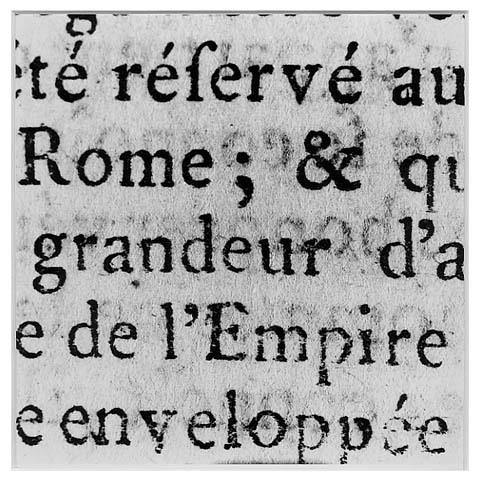 té réſervé au
Rome; & qu
grandeur d'a
e de l'Empire
e enveloppée